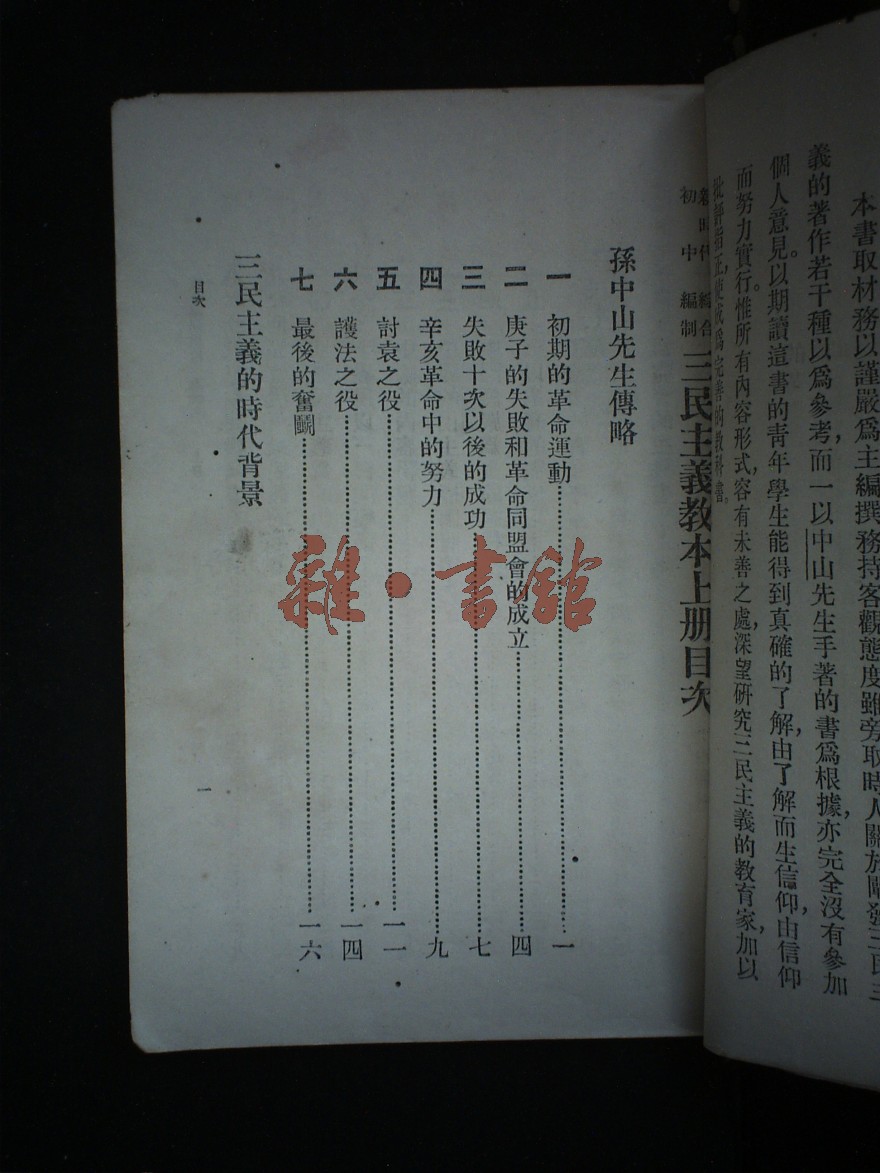 本書取材務以謹嚴爲主編撰務持客觀態度雖旁取時人關於闡發三民主
義的著作若干種以爲參考，而一以中山先生手著的書爲根據，亦完全沒有參加
個人意見。以期讀這書的靑年學生能得到真確的了解，由了解而生信仰，由信仰
而努力實行。惟所有內容形式，容有未善之處，深望研究三民主義的教育家，加以
批評指正，使成爲完善的教科書。
初中 編制
三民主義教本上册目次
孫中山先生傳略
一 初期的革命運動……一
二 庚子的失敗和革命同盟會的成立……四
三 失敗十次以後的成功……七
四 辛亥革命中的努力……九
五 討袁之役……一一
六 護法之役……一四
七 最後的奮鬭……一六
三民主義的時代背景
目次
一
雜·書館